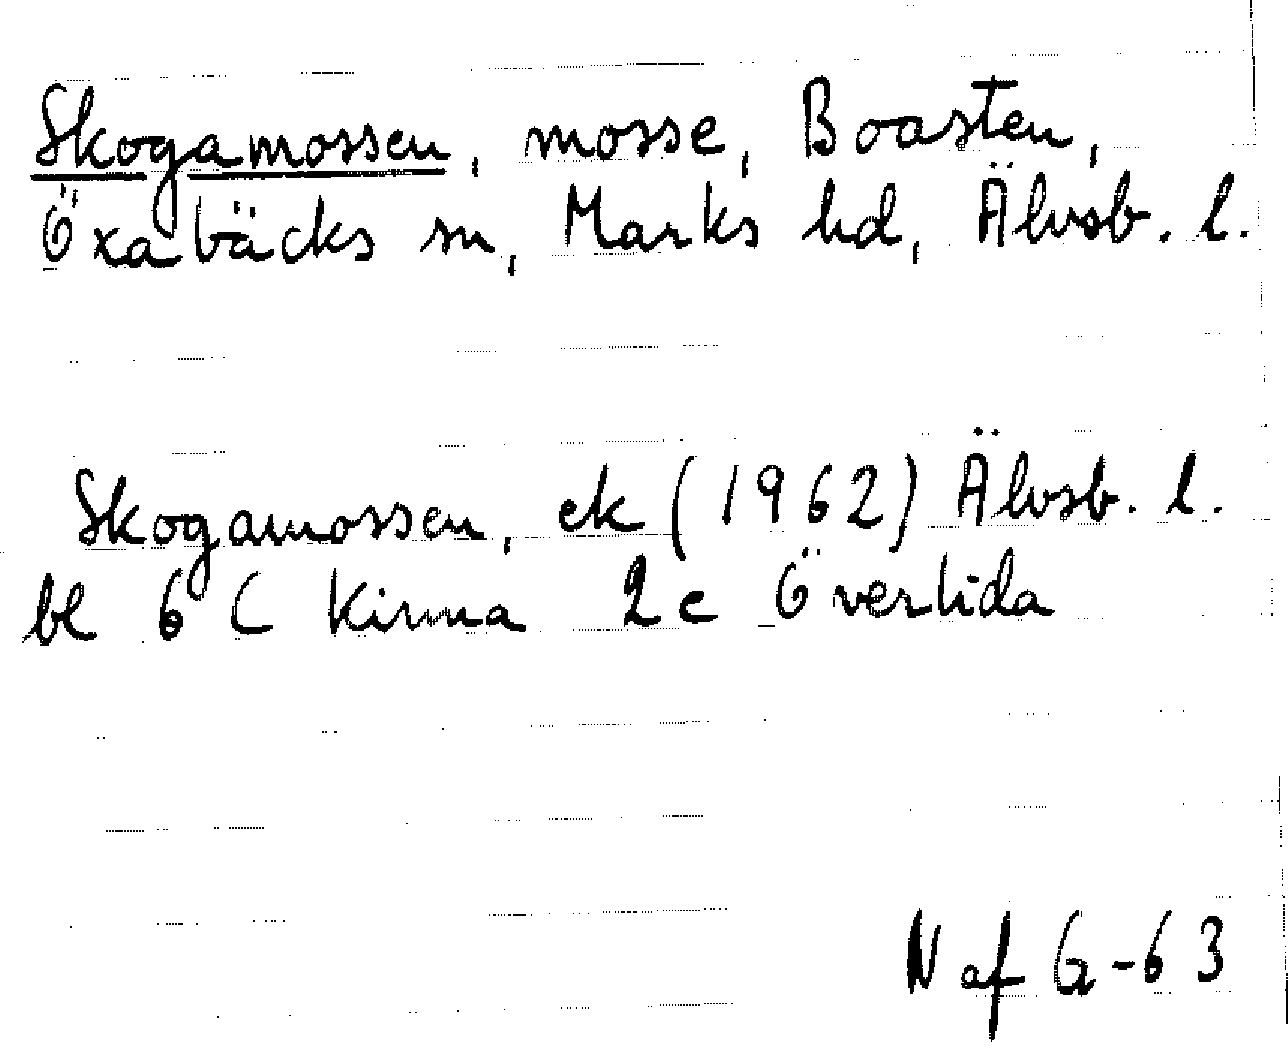 Skogamossen, mosse, Boasten,
Öxabäcks sn, Marks hd, Älvsb. l.
Skogamossen, ek (1962) Älvsb. l.
bl 6 C Kinna 2c Överlida
N af G-63